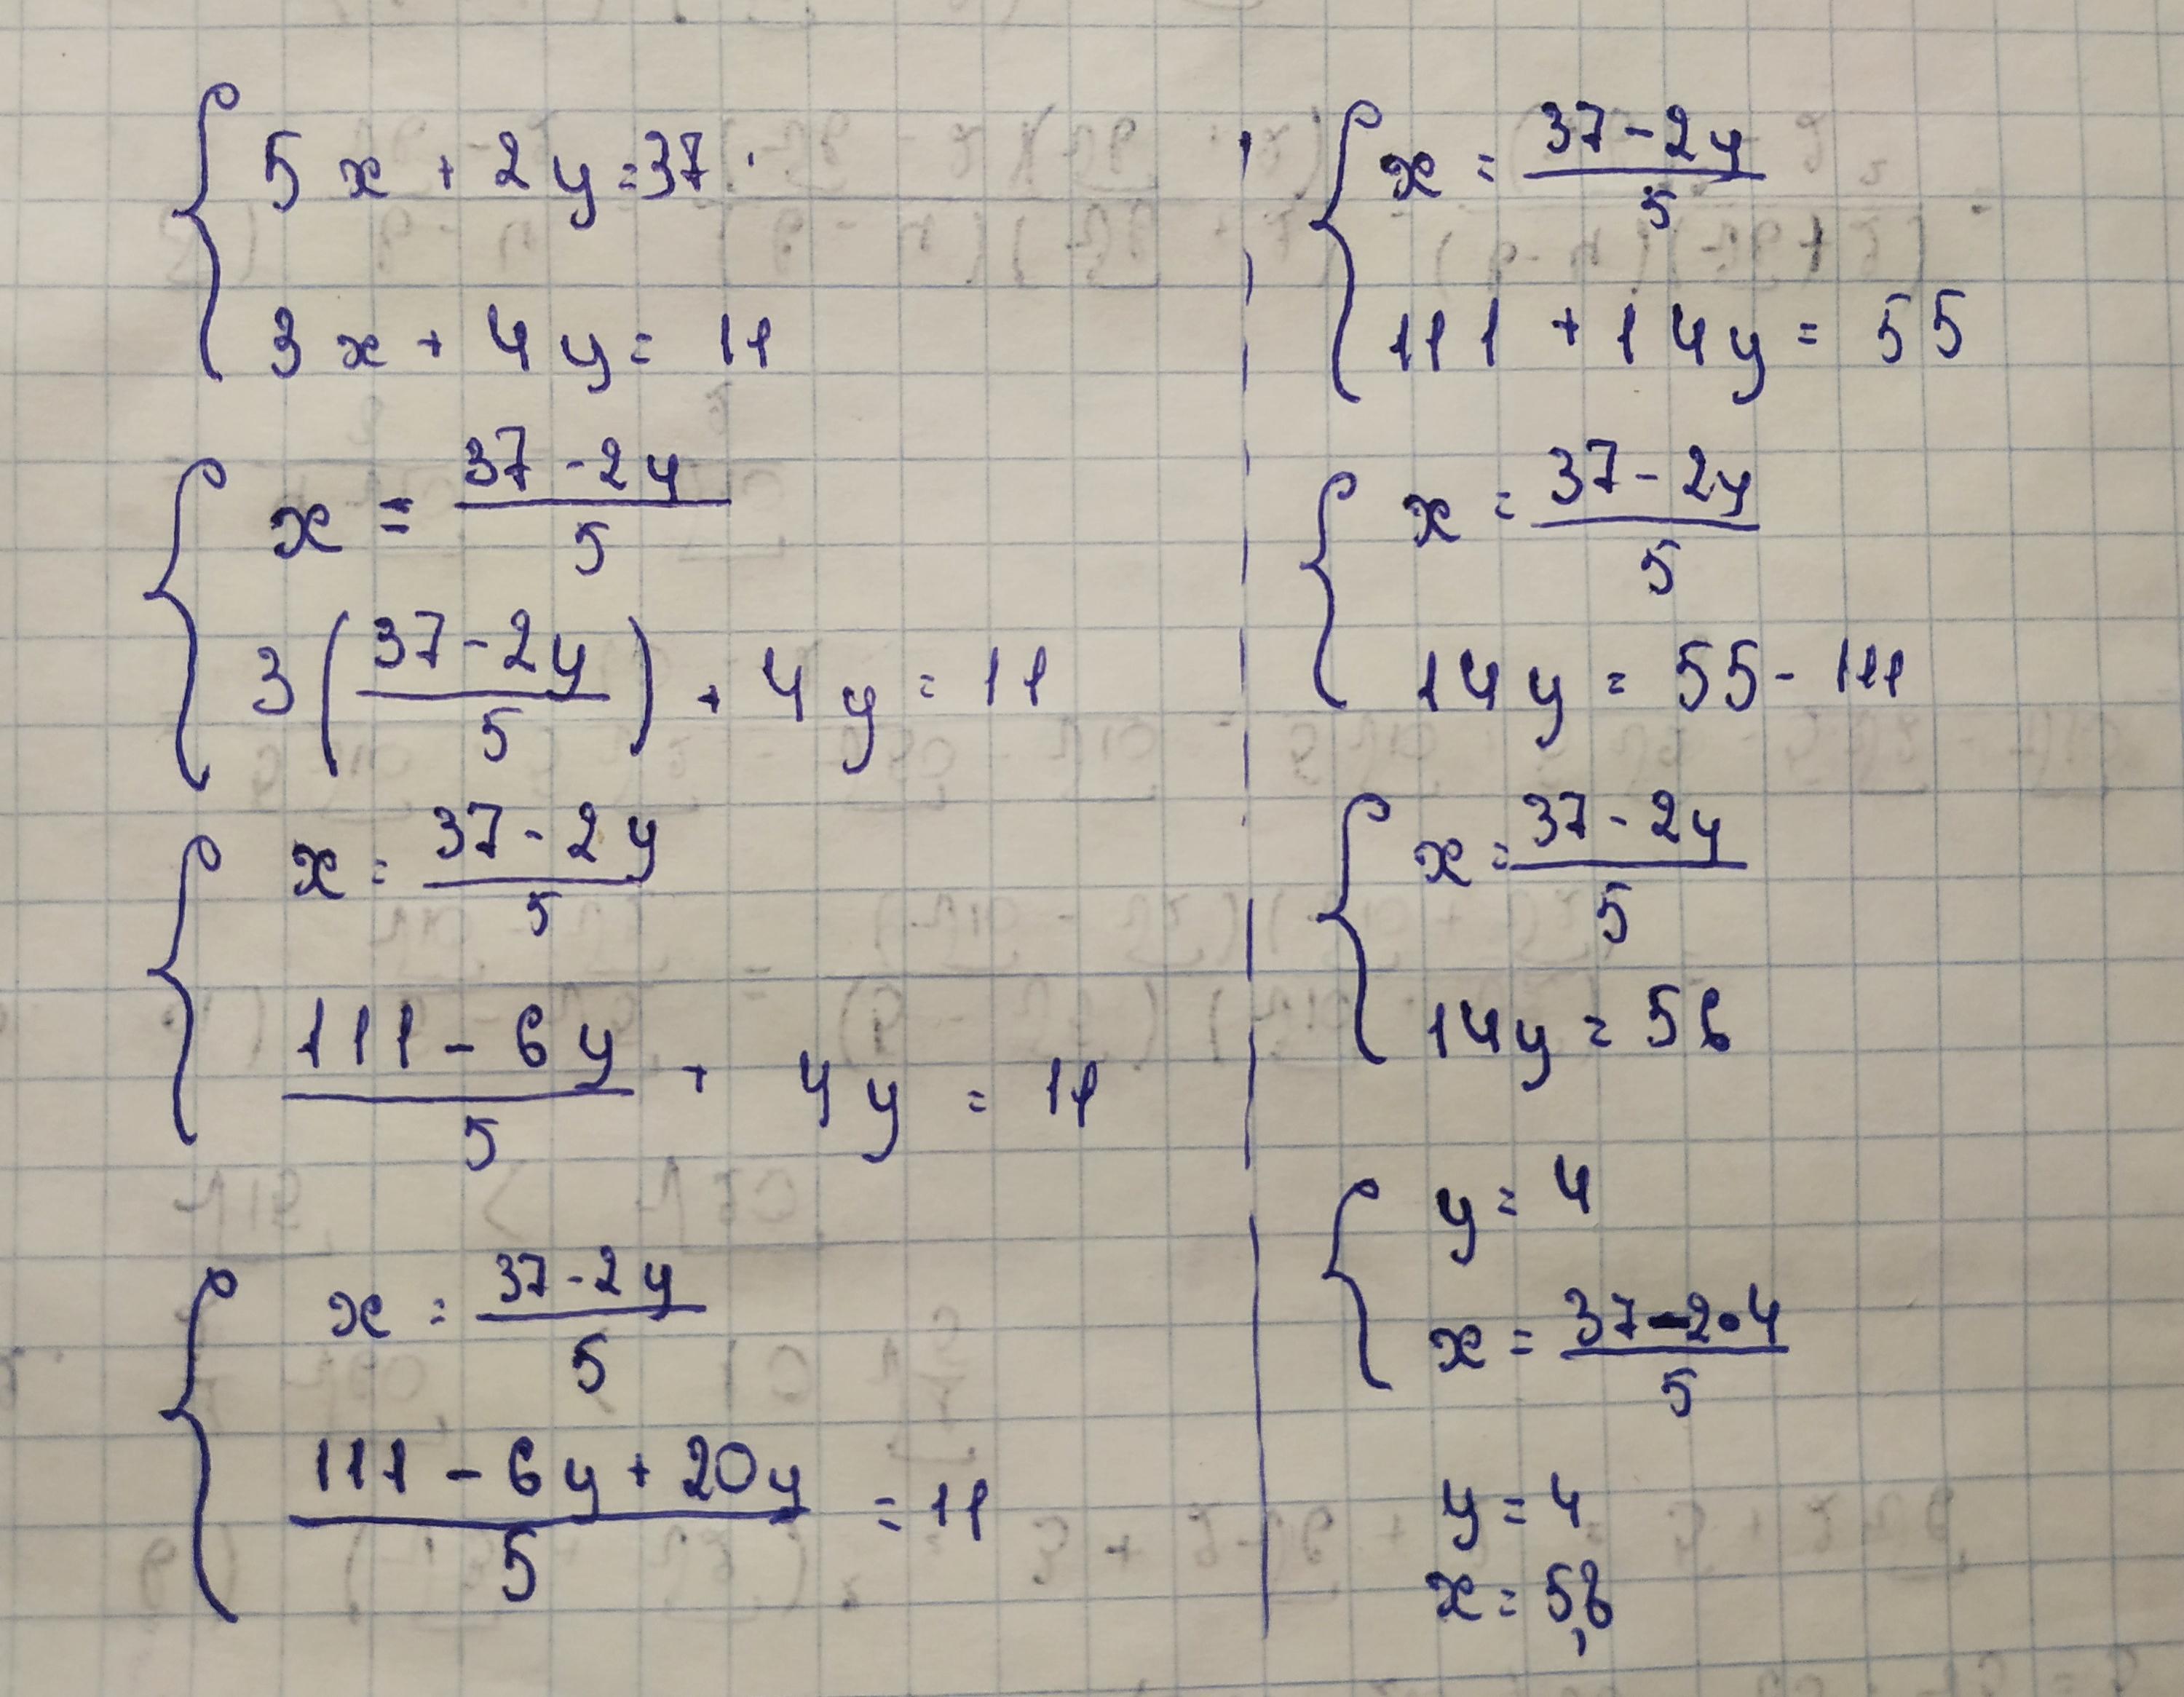 5x + 2y = 37
3x + 4y = 11
x = (37 - 2y)/5
3((37 - 2y)/5) + 4y = 11
x = (37 - 2y)/5
(111 - 6y)/5 + 4y = 11
x = (37 - 2y)/5
(111 - 6y + 20y)/5 = 11
x = (37 - 2y)/5
111 + 14y = 55
x = (37 - 2y)/5
14y = 55 - 111
x = (37 - 2y)/5
14y = 56
y = 4
x = (37 - 2·4)/5
y = 4
x = 5,8